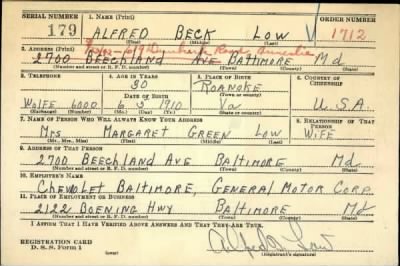 SERIAL NUMBER 1. NAME (Print) ORDER NUMBER
179 ALFRED BECK LOW V 1712
(First) (Middle) (Last)
2. ADDRESS (Print)
2700 BEECHLAND AVE BALTIMORE Md
(Number and street or R. F. D. number) (Town) (County) (State)
3. TELEPHONE 4. AGE IN YEARS 5. PLACE OF BIRTH 6. COUNTRY OF CITIZENSHIP
30 ROANOKE
DATE OF BIRTH (Town or county)
WOLFE 6000 6 3 1910 Va U.S.A.
(Exchange) (Number) (Mo.) (Day) (Yr.) (State or country)
7. NAME OF PERSON WHO WILL ALWAYS KNOW YOUR ADDRESS 8. RELATIONSHIP OF THAT PERSON
Mrs MARGARET GREEN LOW WIFE
(Mr., Mrs., Miss) (First) (Middle) (Last)
9. ADDRESS OF THAT PERSON
2700 BEECHLAND AVE BALTIMORE Md
(Number and street or R. F. D. number) (Town) (County) (State)
10. EMPLOYER'S NAME
CHEVROLET BALTIMORE, GENERAL MOTOR CORP.
11. PLACE OF EMPLOYMENT OR BUSINESS
2122 BOENING HWY BALTIMORE Md
(Number and street or R. F. D. number) (Town) (County) (State)
I AFFIRM THAT I HAVE VERIFIED ABOVE ANSWERS AND THAT THEY ARE TRUE.
REGISTRATION CARD
D. S. S. Form 1 (Registrant's signature)
Alfred B. Low